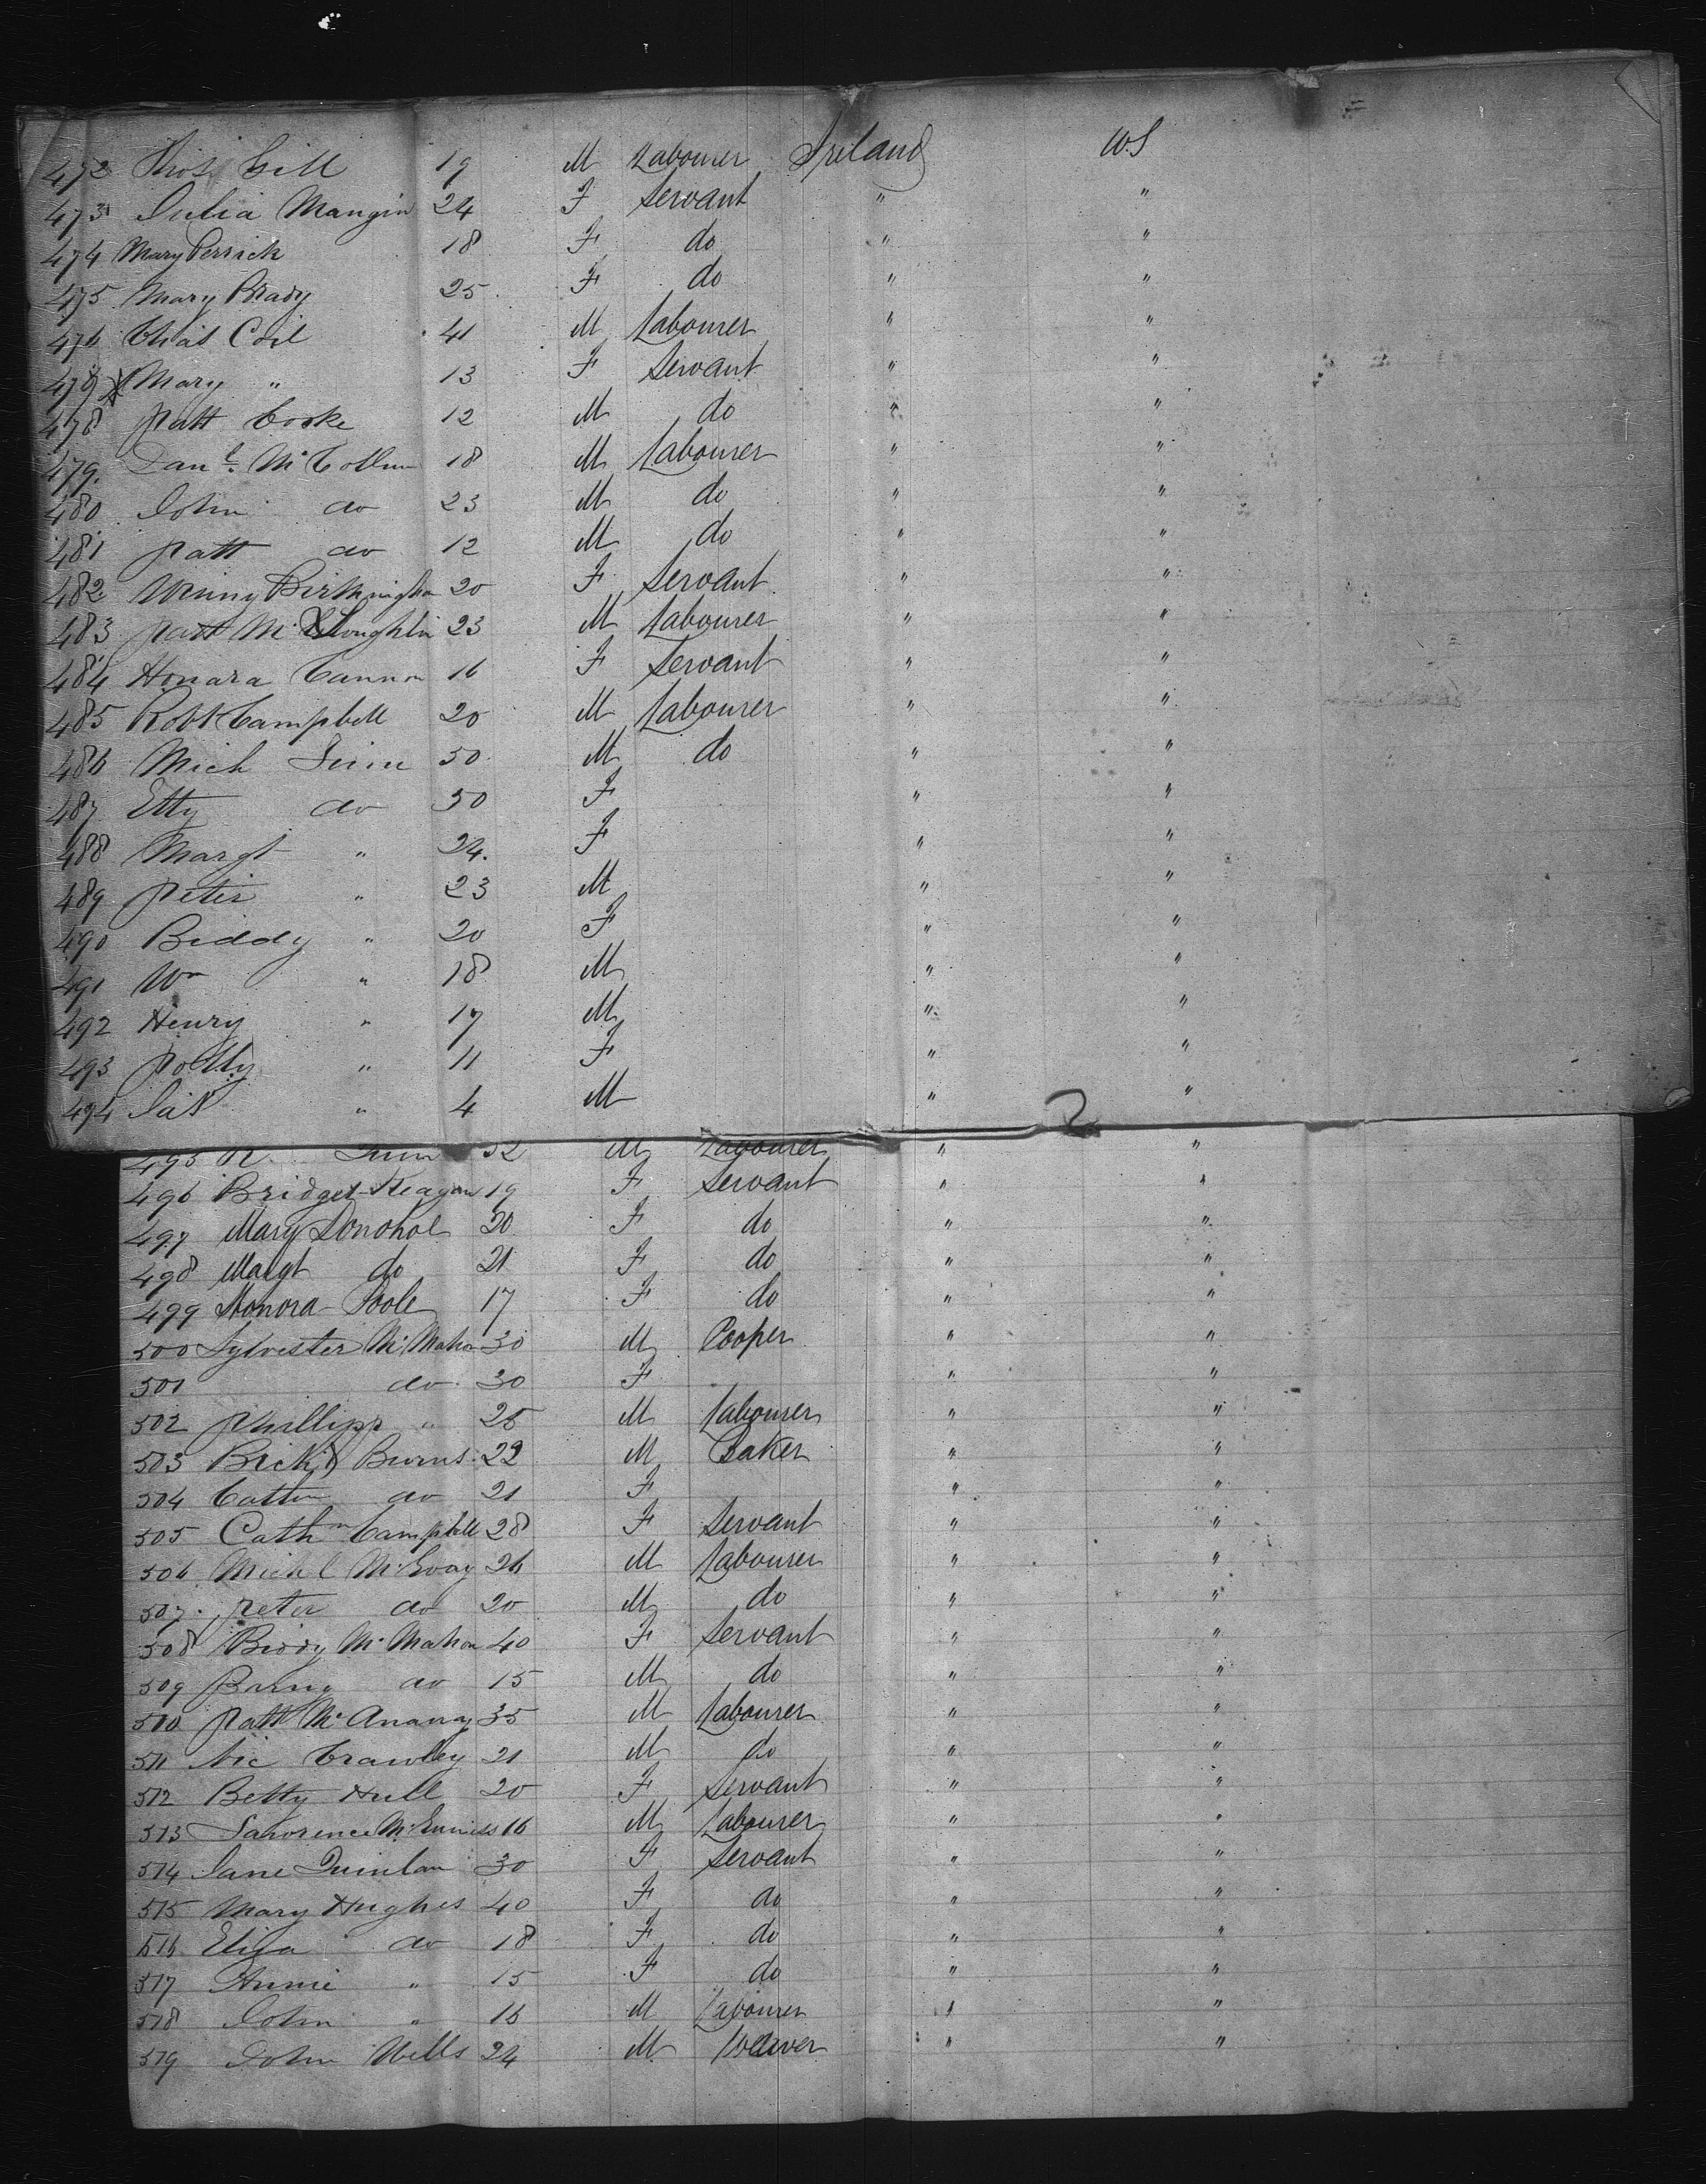 472 Thos Gill 19 M Labourer Ireland U.S
473 Julia Mangin 24 F Servant " "
474 Mary Derrick 18 F do " "
475 Mary Brady 25 F do " "
476 Chas Coil 41 M Labourer " "
477 Mary " 13 F Servant " "
478 Patt Cooke 12 M do " "
479. Danl. McCollum 18 M Labourer " "
480 John do 23 M do " "
481 Patt do 12 M do " "
482 Winny Birmingham 20 F Servant " "
483 Patt McLoughlin 23 M Labourer " "
484 Honara Cannon 16 F Servant " "
485 Robt Campbell 20 M Labourer " "
486 Mich Finn 50 M do " "
487 Etty do 50 F " "
488 Margt " 24. F " "
489 Peter " 23 M " "
490 Biddy " 20 F " "
491 Wm " 18 M " "
492 Henry " 17 M " "
493 Polly " 11 F " "
494 Jas " 4 M " "
2
495 R. 32 M Labourer " "
496 Bridget Reagan 19 F Servant " "
497 Mary Donohoe 20 F do " "
498 Margt do 21 F do " "
499 Honora Toole 17 F do " "
500 Sylvester McMahon 30 M Cooper " "
501 do 30 F " "
502 Phillip " 25 M Labourer " "
503 Burns 22 M Baker " "
504 do 21 F " "
505 Cathn Campbell 28 F Servant " "
506 Michl McEvoy 26 M Labourer " "
507. Peter do 20 M do " "
508 Biddy McMahon 40 F Servant " "
509 Barny do 15 M do " "
510 Patt McAnany 35 M Labourer " "
511 Nic Crawley 21 M do " "
512 Betty Hull 20 F Servant " "
513 Lawrence 16 M Labourer " "
514 Jane Quinlan 30 F Servant " "
515 Mary Hughes 40 F do " "
516 Eliza do 18 F do " "
517 Annie " 15 F do " "
518 John " 16 M Labourer " "
519 John Wells 24 M Weaver " "